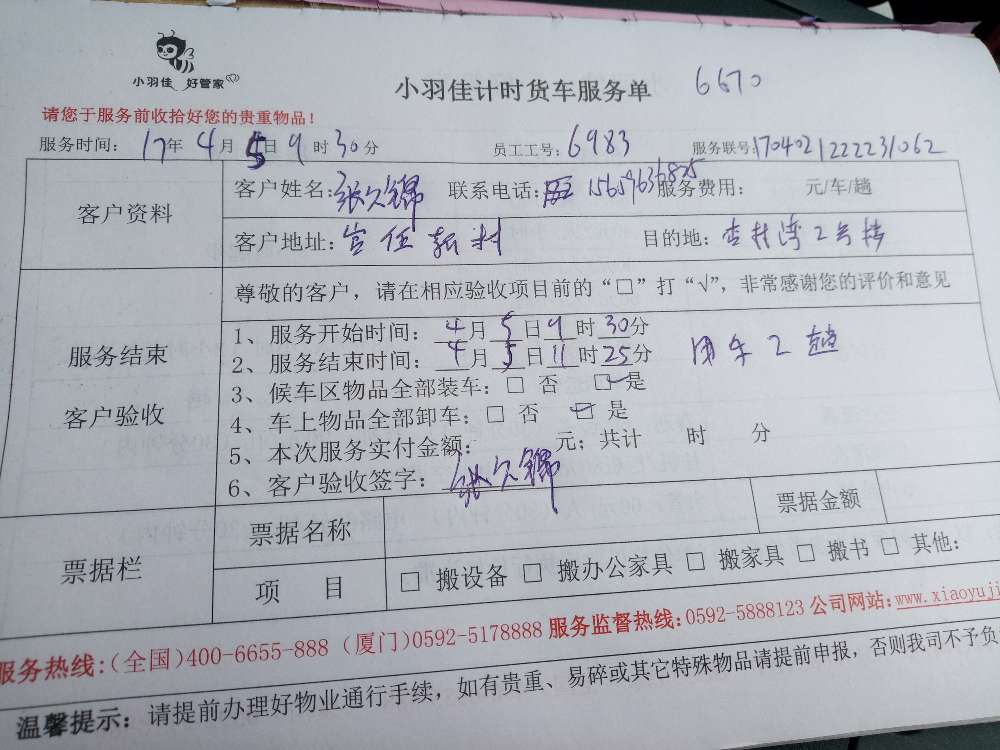 小羽佳 好管家
小羽佳计时货车服务单 6670
请您于服务前收拾好您的贵重物品！
服务时间： 17年 4月 5日 9时 30分 员工工号：6983 服务联号：1704021222231062
客户资料
客户姓名：张久锦 联系电话： 15659636825 服务费用： 元/车/趟
客户地址：官任新村 目的地：杏林湾2号楼
服务结束
客户验收
尊敬的客户，请在相应验收项目前的“□”打“√”，非常感谢您的评价和意见
1、服务开始时间： 4月 5日 9时 30分
2、服务结束时间： 4月 5日 11时 25分 用车2趟
3、候车区物品全部装车：□ 否 ☑ 是
4、车上物品全部卸车：□ 否 ☑ 是
5、本次服务实付金额： 元；共计 时 分
6、客户验收签字： 张久锦
票据栏
票据名称 票据金额
项 目 □ 搬设备 □ 搬办公家具 □ 搬家具 □ 搬书 □ 其他：
服务热线：（全国）400-6655-888（厦门）0592-5178888 服务监督热线：0592-5888123 公司网站：www.xiaoyuji
温馨提示：请提前办理好物业通行手续，如有贵重、易碎或其它特殊物品请提前申报，否则我司不予负